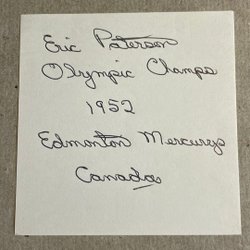 Eric Paterson
Olympic Champs
1952
Edmonton Mercurys
Canada